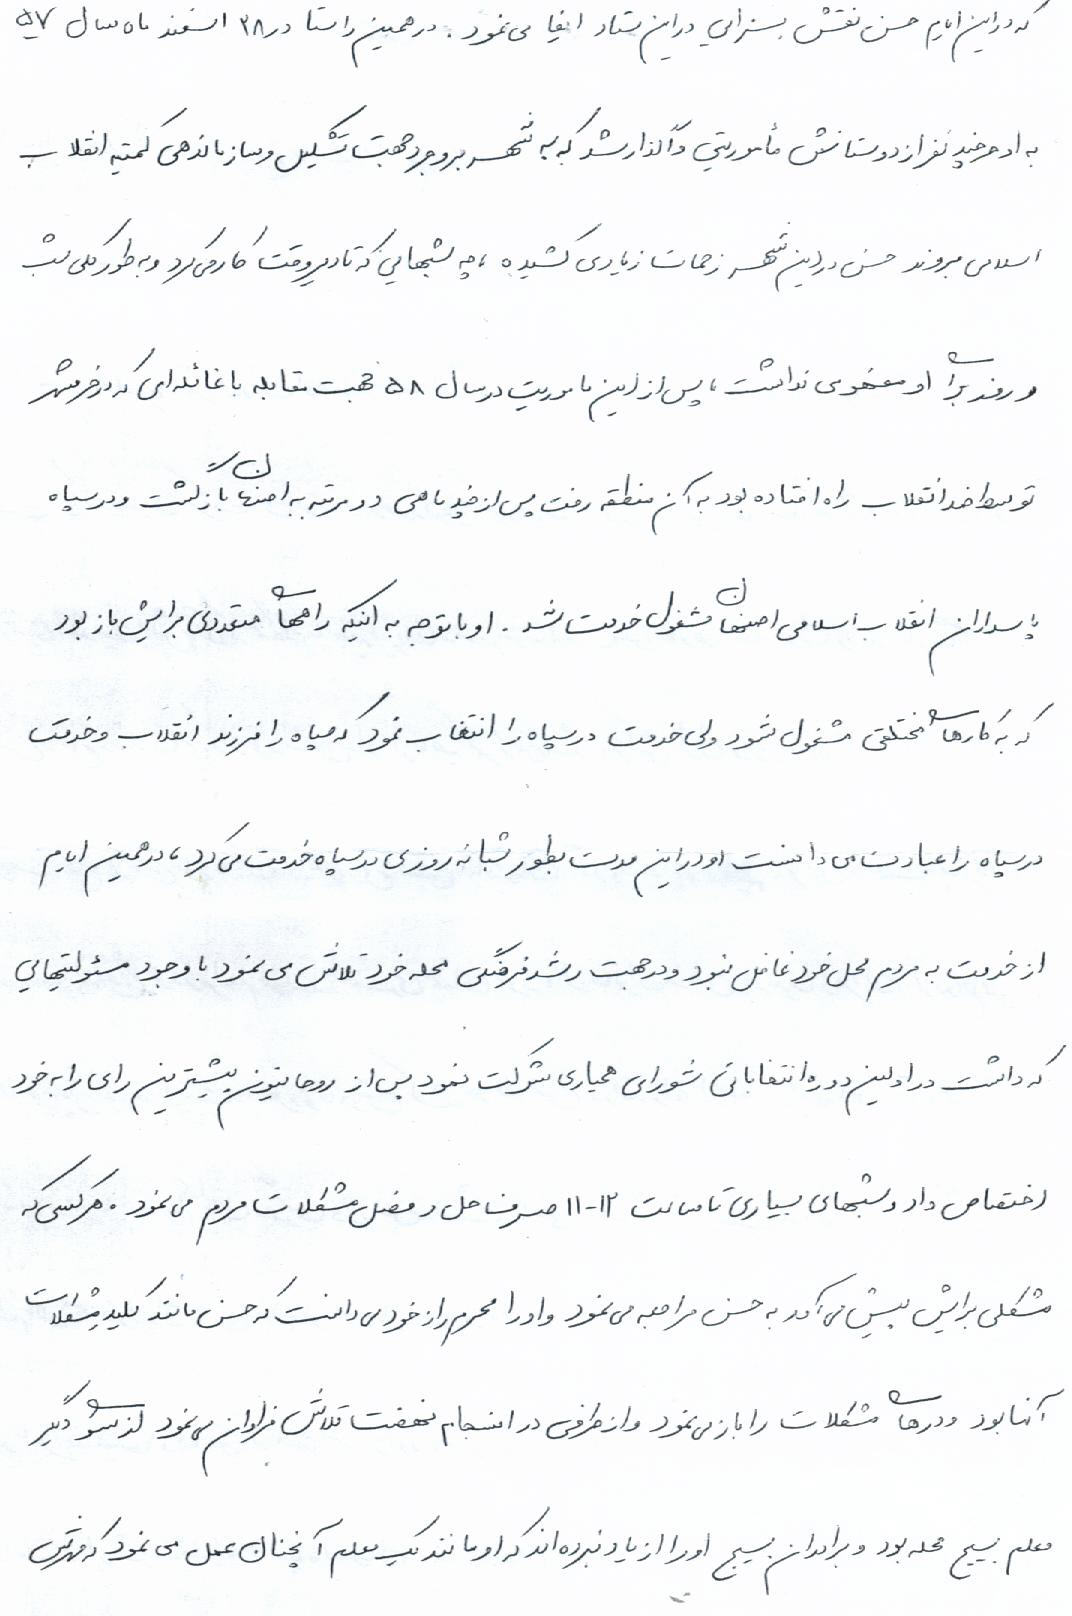 که در این ایام حسن نقش بسزایی در این ستاد ایفا می نمود . در همین راستا در ۲۸ اسفند ماه سال ۵۷
به او و چند نفر از دوستانش مأموریتی واگذار شد که به شهر بروجرد جهت تشکیل و سازماندهی کمیته انقلاب
اسلامی بروند حسن در این شهر زحمات زیادی کشیده ، چه شبهایی که تا دیروقت کار می کرد و به طور کلی شب
و روز برای او مفهومی نداشت ، پس از این ماموریت در سال ۵۸ جهت مقابله با غائله ای که در خرمشهر
توسط ضد انقلاب راه افتاده بود به آن منطقه رفت پس از چند ماهی دو مرتبه به اصفهان بازگشت و در سپاه
پاسداران انقلاب اسلامی اصفهان مشغول خدمت شد . او با توجه به اینکه راههای متعددی برایش باز بود
که به کارهای مختلفی مشغول شود ولی خدمت در سپاه را انتخاب نمود که سپاه را فرزند انقلاب و خدمت
در سپاه را عبادت می دانست او در این مدت بطور شبانه روزی در سپاه خدمت می کرد ، در همین ایام
از خدمت به مردم محل خود غافل نبود و در جهت رشد فرهنگی محله خود تلاش می نمود با وجود مسئولیتهایی
که داشت در اولین دوره انتخاباتی شورای همیاری شرکت نمود پس از روحانیون بیشترین رای را به خود
اختصاص داد و شبهای بسیاری تا ساعت ۱۲-۱۱ صرف حل و فصل مشکلات مردم می نمود . هر کسی که
مشکلی برایش پیش می آمد به حسن مراجعه می نمود و او را محرم راز خود می دانست که حسن مانند کلید مشکلات
آنها بود و درهای مشکلات را باز می نمود و از طرفی در انسجام نهضت تلاش فراوان می نمود از سوی دیگر
معلم بسیج محله بود و برادران بسیج او را از یاد نبرده اند که او مانند یک معلم آنچنان عمل می نمود که